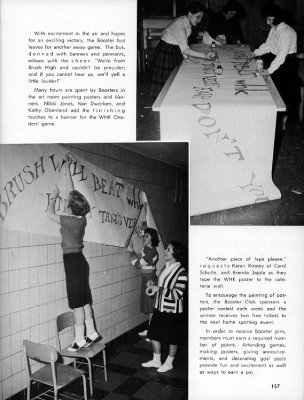 With excitement in the air and hopes
for an exciting victory, the Booster bus
leaves for another away game. The bus,
donned with banners and pennants,
echoes with the cheer "We're from
Brush High and couldn't be prouder;
and if you cannot hear us, we'll yell a
little louder!"
Many hours are spent by Boosters in
the art room painting posters and ban-
ners. Nikki Jones, Nan Dworken, and
Kathy Obenland add the finishing
touches to a banner for the WHK One-
ders' game.
DON'T YOU
BRUSH WILL BEAT
"Another piece of tape please."
requests Karen Kinney of Carol
Schulte, and Brenda Jajola as they
tape the WHK poster to the cafe-
teria wall.
To encourage the painting of pos-
ters, the Booster Club sponsors a
poster contest each week and the
winner receives two free tickets to
the next home sporting event.
In order to receive Booster pins,
members must earn a required num-
ber of points. Attending games,
making posters, giving announce-
ments, and decorating goal posts
provide fun and excitement as well
as ways to earn a pin.
157